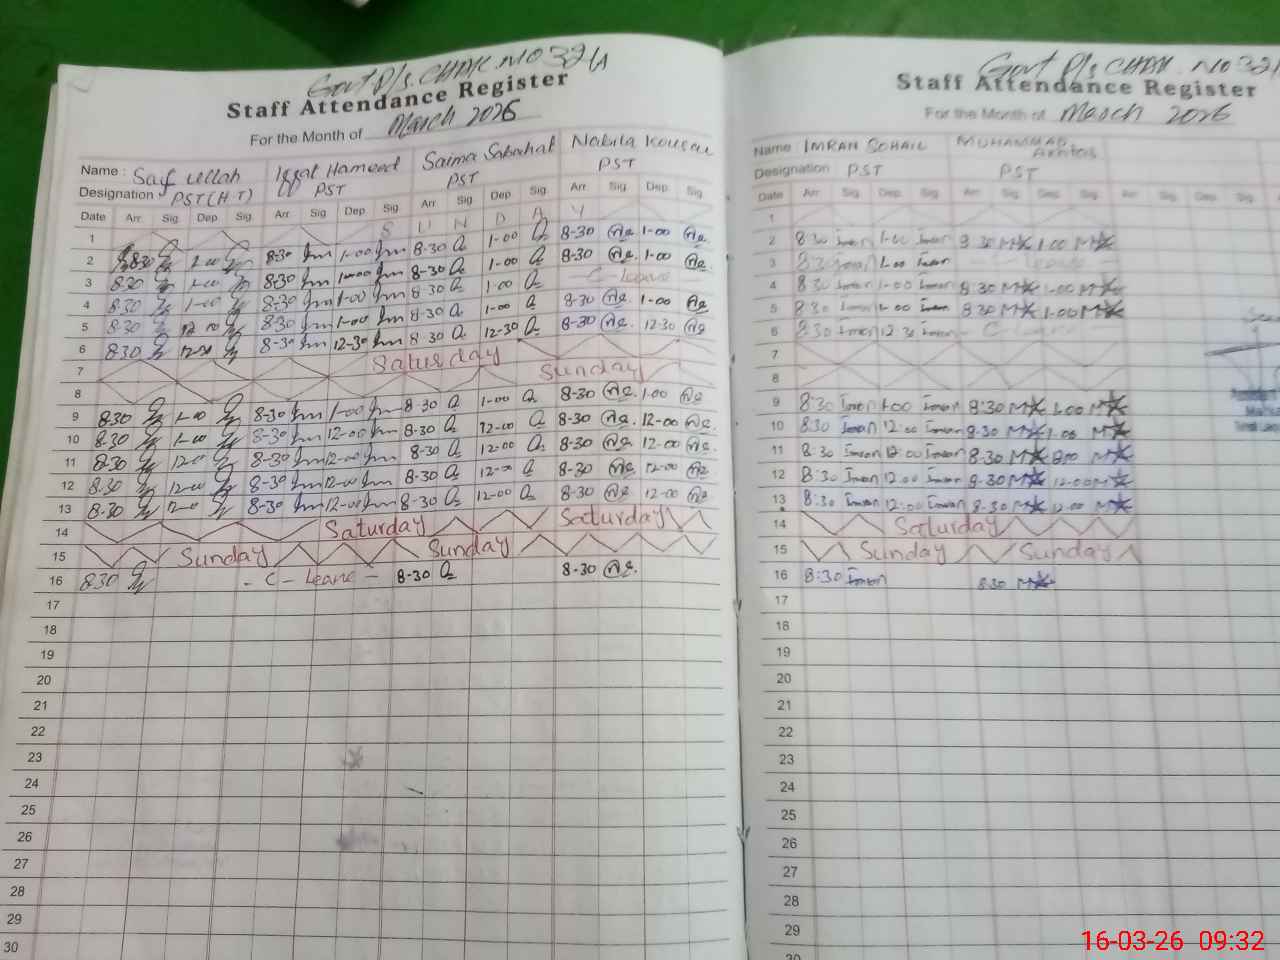 Govt P/s. CHAK. NO 32/A
Staff Attendance Register
For the Month of March 2026
Name : Saif ullah Iffat Hameed Saima Sabahat Nabila Kousar
Designation PST(H.T) PST PST PST
Date Arr. Sig. Dep. Sig. Arr Sig Dep Sig Arr Sig Dep Sig. Arr. Sig. Dep. Sig.
1 S U N D A Y
2 8:30 1-00 8-30 1-00 8-30 1-00 8-30 1-00
3 8-30 1-00 8-30 1-00 8-30 1-00 8-30 1-00
4 8-30 1-00 8-30 1-00 8-30 1-00 C-Leave
5 8-30 12-00 8-30 1-00 8-30 1-00 8-30 1-00
6 8-30 12-30 8-30 12-30 8-30 12-30 8-30 12-30
7 Saturday
8 Sunday
9 8-30 1-00 8-30 1-00 8-30 1-00 8-30 1-00
10 8-30 1-00 8-30 12-00 8-30 12-00 8-30 12-00
11 8-30 12-00 8-30 12-00 8-30 12-00 8-30 12-00
12 8-30 12-00 8-30 12-00 8-30 12-00 8-30 12-00
13 8-30 12-0 8-30 12-00 8-30 12-00 8-30 12-00
14 Saturday Saturday
15 Sunday Sunday
16 8-30 - C - Leave - 8-30 8-30
17
18
19
20
21
22
23
24
25
26
27
28
29
30
Govt P/s CHAK. NO 32/
Staff Attendance Register
For the Month of March 2026
Name IMRAN SOHAIL MUHAMMAD
Designation PST PST
Date Arr Sig. Dep. Sig. Arr. Sig. Dep. Sig. Arr. Sig. Dep. Sig.
1
2 8:30 Imran 1:00 Imran 8:30 1:00
3 8:30 Imran 1:00 Imran Leave
4 8:30 Imran 1:00 Imran 8:30 1:00
5 8:30 Imran 1:00 Imran 8:30 1:00
6 8:30 Imran 12:30 Imran
7
8
9 8:30 Imran 1:00 Imran 8:30 1:00
10 8:30 Imran 12:00 Imran 8-30 1-00
11 8:30 Imran 12:00 Imran 8-30
12 8:30 Imran 12:00 Imran 8-30 12:00
13 8:30 Imran 12:00 Imran 8-30 12:00
14 Saturday
15 Sunday Sunday
16 8:30 Imran 8:30
17
18
19
20
21
22
23
24
25
26
27
28
29
30
16-03-26 09:32